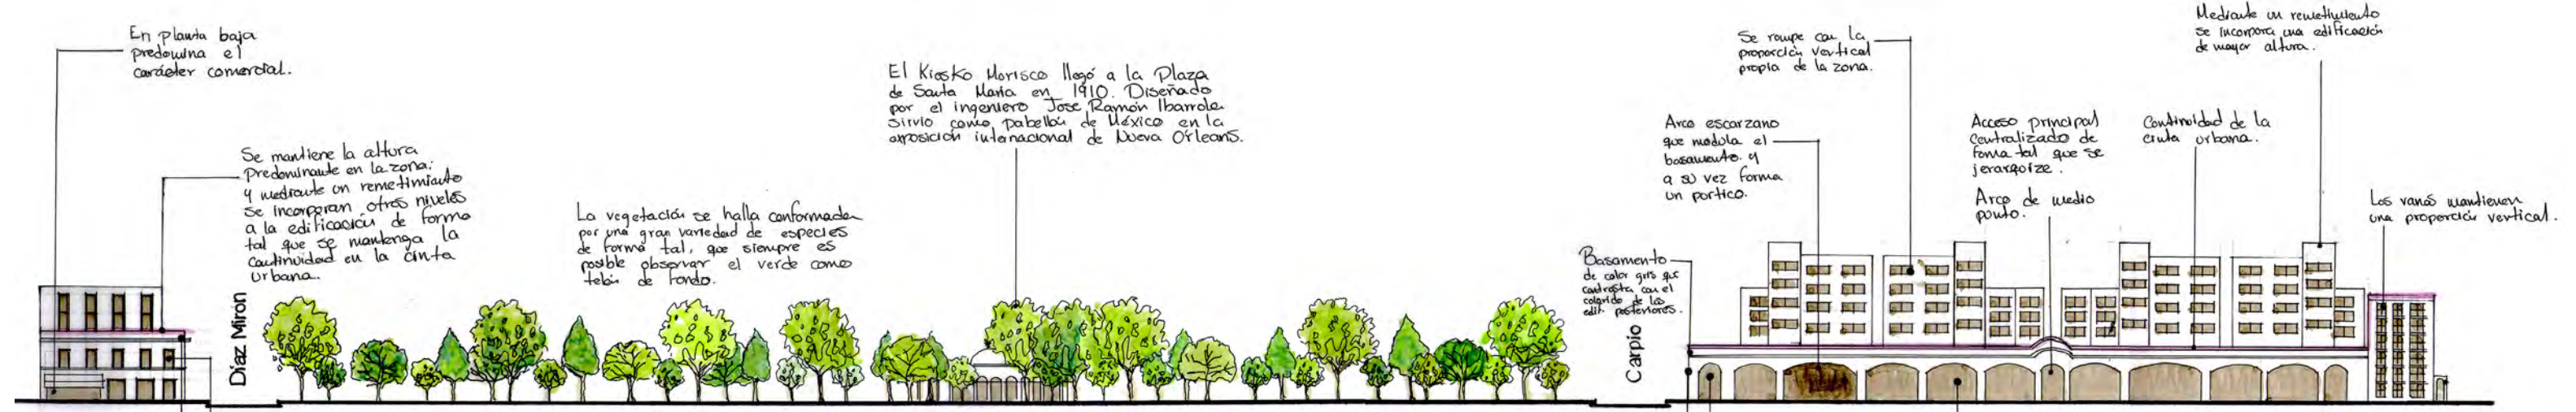 En planta baja
predomina el
carácter comercial.
Se mantiene la altura
Predominante en la zona;
y mediante un remetimiento
se incorporan otros niveles
a la edificación de forma
tal que se mantenga la
continuidad en la cinta
Urbana.
Díaz Mirón
La vegetación se halla conformada
por una gran variedad de especies
de forma tal, que siempre es
posible observar el verde como
telón de fondo.
El Kiosko Morisco llegó a la Plaza
de Santa María en 1910. Diseñado
por el ingeniero Jose Ramón Ibarrola
sirvio como pabellón de México en la
exposición internacional de Nueva Orleans.
Carpio
Basamento
de color gris que
contrasta con el
colorido de los
edif. posteriores.
Arco escarzano
que modula el
basamento y
a su vez forma
un portico.
Se rompe con la
proporción vertical
propia de la zona.
Acceso principal
centralizado de
forma tal que se
jerarquize.
Arco de medio
punto.
Continuidad de la
cinta urbana.
Mediante un remetimiento
se incorpora una edificación
de mayor altura.
Los vanos mantienen
una proporción vertical.